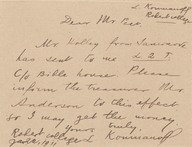 L Koumanoff
Robert College
Dear Mr Gee
Mr Holley from Samacoff
has sent to me L 2 T.
C/o Bible house. Please
inform the treasurer Mr
Anderson to this effect
so I may get the money
Yours truly,
Robert College L Koumanoff
Jan 1911